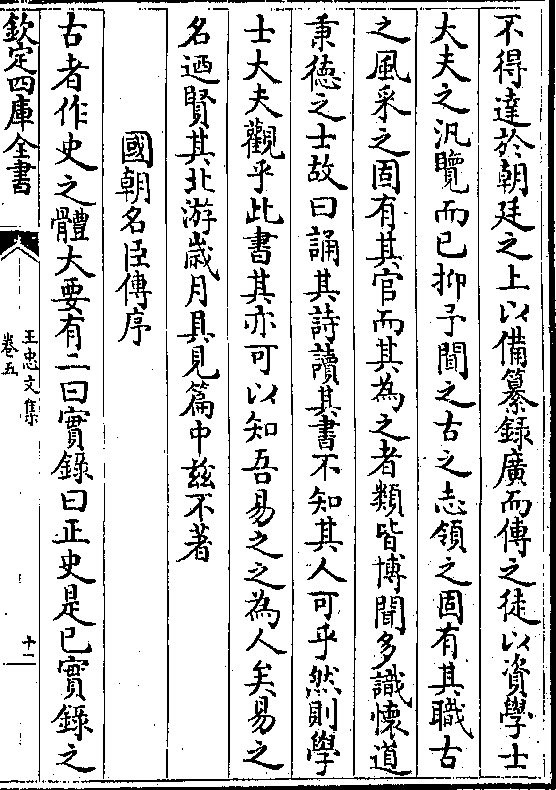 不得達於朝廷之上以備纂錄廣而傳之徒以資學士
大夫之汎覽而已抑予聞之古之志領之固有其職古
之風采之固有其官而其為之者類皆博聞多識懷道
秉德之士故曰誦其詩讀其書不知其人可乎然則學
士大夫觀乎此書其亦可以知吾易之之為人矣易之
名迺賢其北游嵗月具見篇中兹不著
國朝名臣傳序
古者作史之體大要有二曰實錄曰正史是已實錄之
欽定四庫全書
王忠文集
卷五
十二